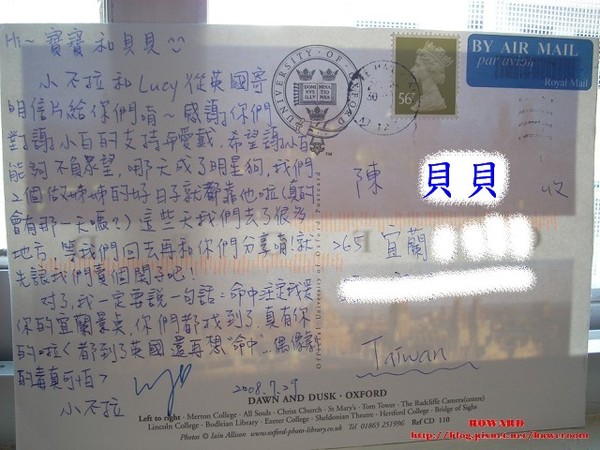 Hi~ 寶寶和貝貝
小不拉和Lucy從英國寄
明信片給你們唷~ 感謝你們
對謝小百的支持和愛戴, 希望謝小百
能夠不負眾望, 哪天成了明星狗, 我們
2個做姊姊的好日子就都靠他啦(真的
會有那一天嗎?) 這些天我們去了很多
地方, 等我們回去再和你們分享唷! 就
先讓我們賣個關子吧!
對了, 我一定要說一句話: 命中注定我是
你的宜蘭景点, 你們都找到了, 真有你
的啦< 都到了英國還再想"命中"... 偶像劇
的毒真可怕>
小不拉
2008.7.29
UNIVERSITY · OF · OXFORD
56P
BY AIR MAIL
par avion
Royal Mail
陳 貝貝 收
265 宜蘭
Taiwan
Official University of Oxford Postcard
DAWN AND DUSK · OXFORD
Left to right - Merton College - All Souls - Christ Church - St Mary's - Tom Tower - The Radcliffe Camera(centre)
Lincoln College - Bodleian Library - Exeter College - Sheldonian Theatre - Hertford College - Bridge of Sighs
Photos © Iain Allison www.oxford-photo-library.co.uk Tel 01865 251996 Ref CD 110
HOWARD
http://blog.pixnet.net/howeroom